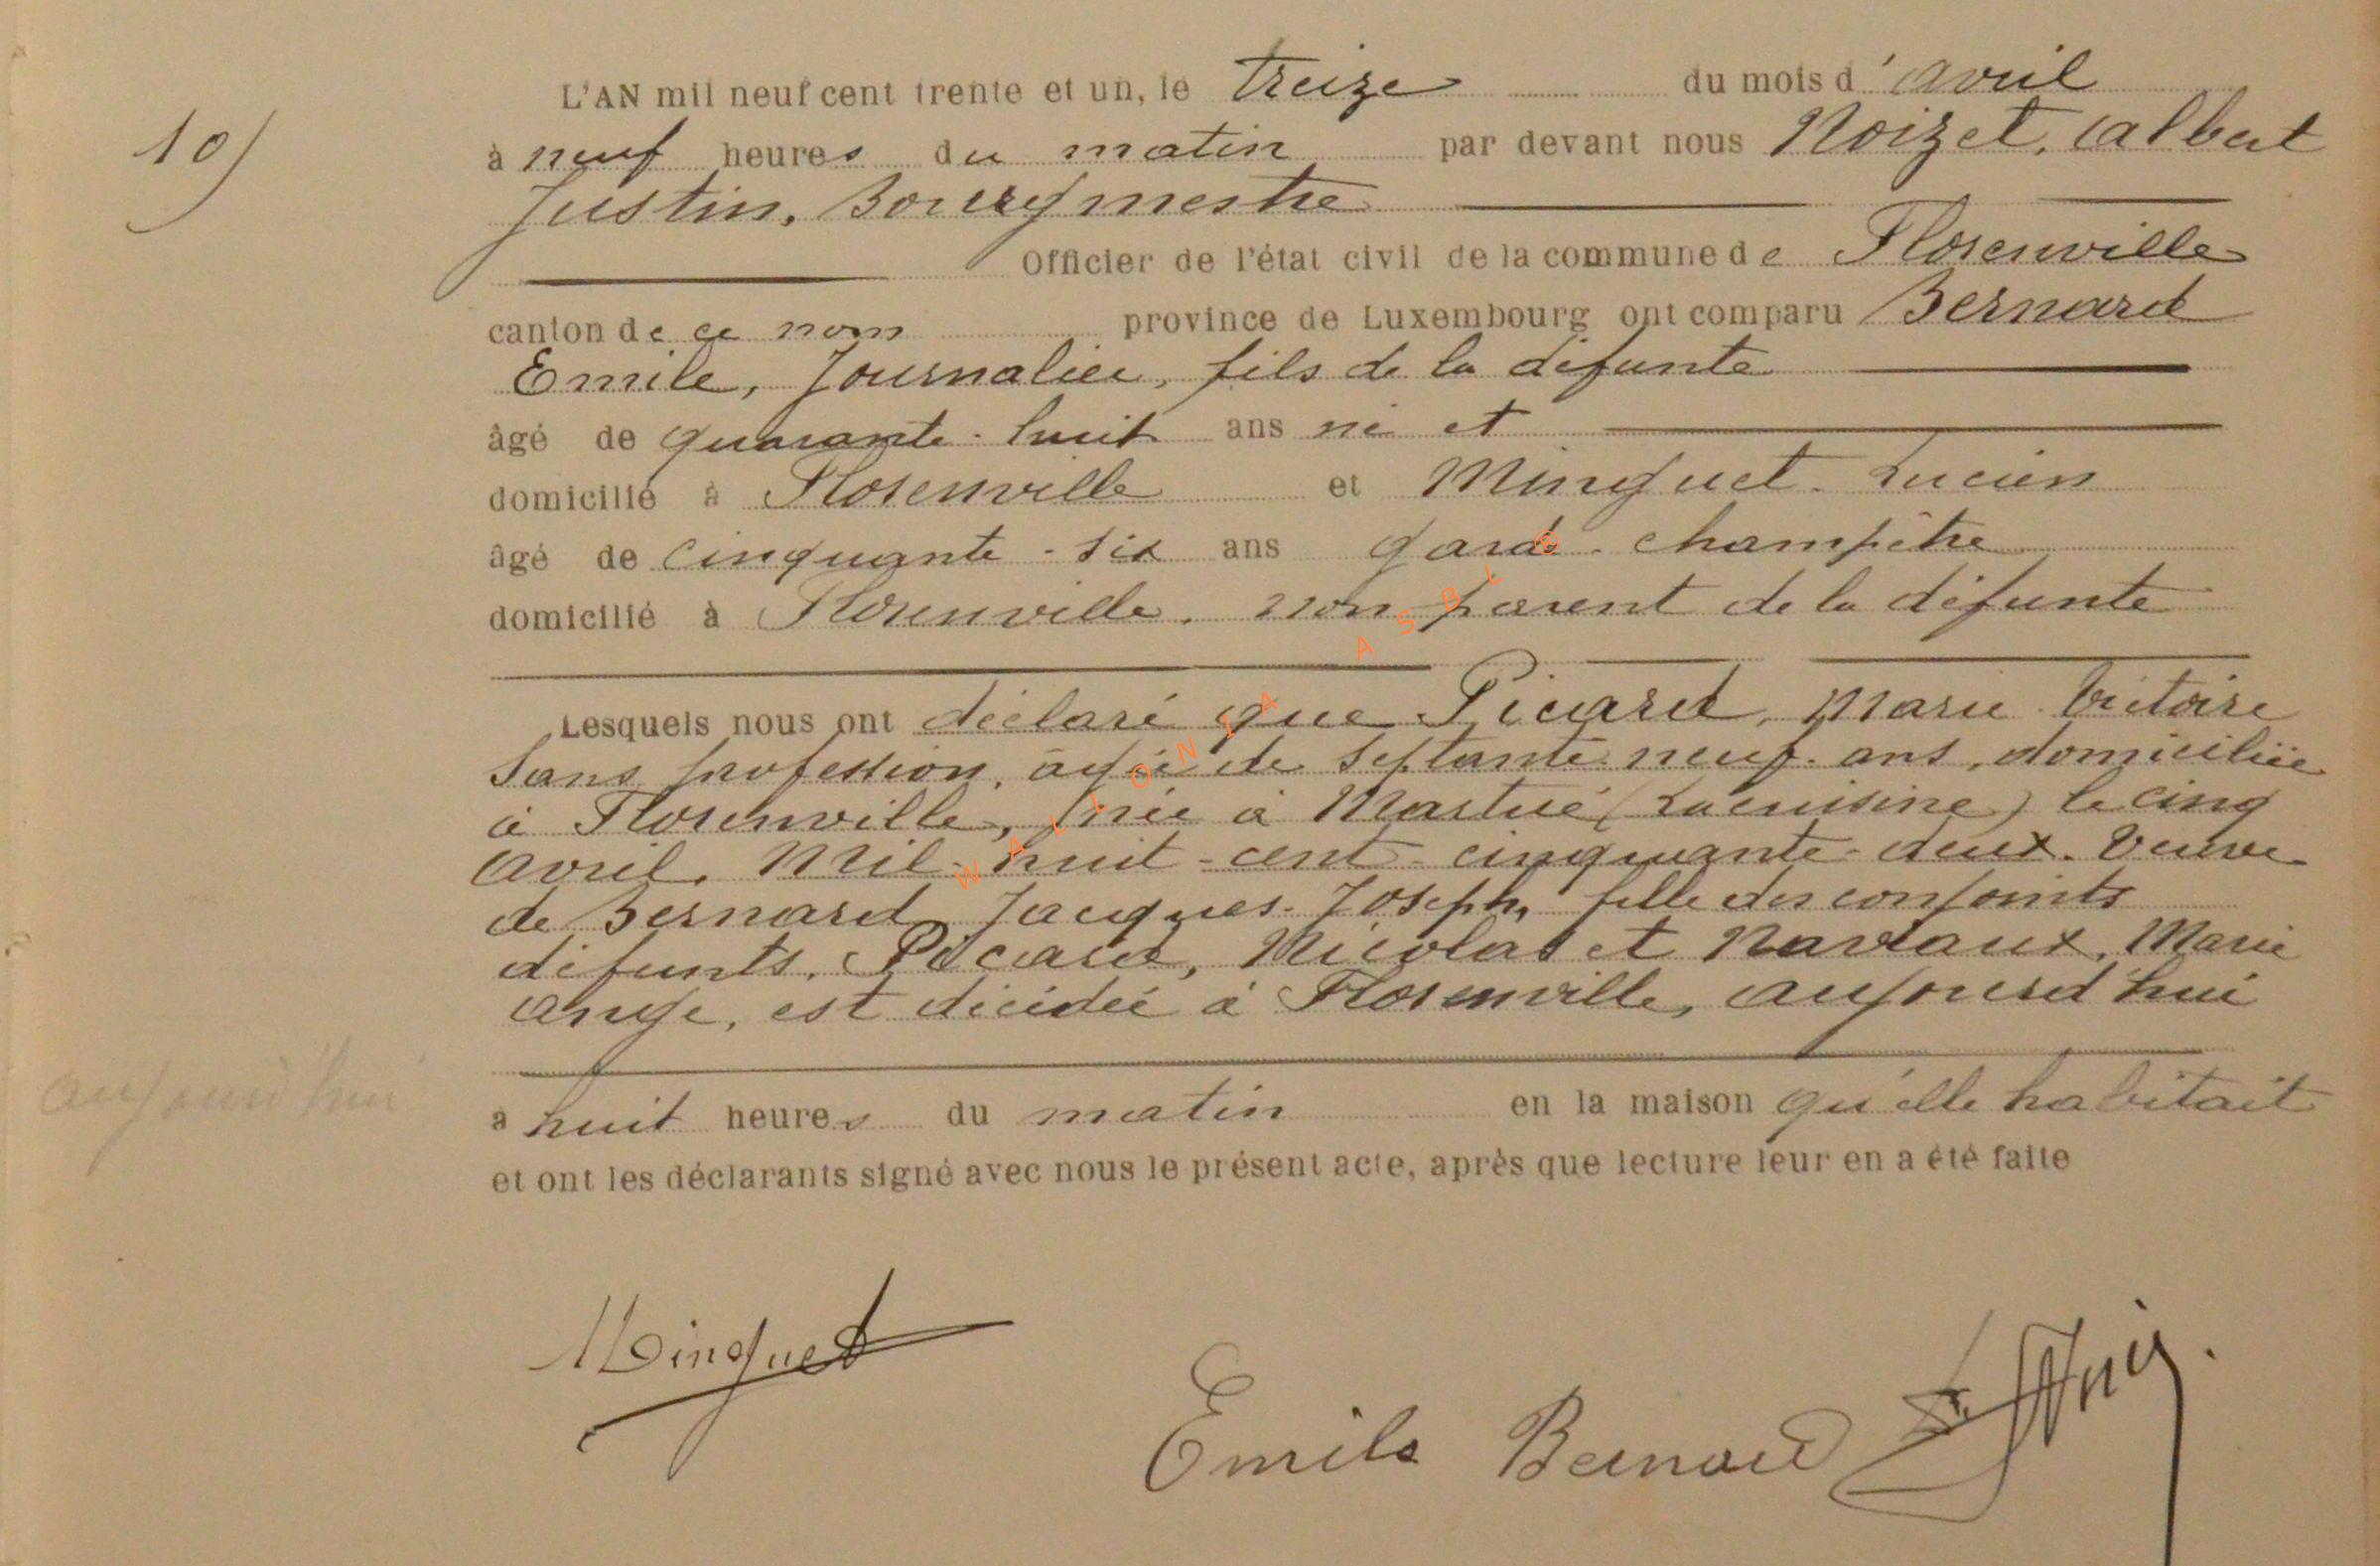 10)
L'AN mil neuf cent trente et un, le treize du mois d'avril
à neuf heures du matin par devant nous Noizet, Albert
Justin, Bourgmestre
Officier de l'état civil de la commune de Florenville
canton de ce nom province de Luxembourg ont comparu Bernard
Emile, Journalier, fils de la défunte
âgé de quarante-huit ans né et
domicilié à Florenville et Minguet Lucien
âgé de cinquante-six ans garde-champêtre
domicilié à Florenville, non parent de la défunte
Lesquels nous ont déclaré que Picard, Marie Victoire
Sans profession, âgée de septante neuf ans, domiciliée
à Florenville, née à Martué (Lacuisine) le cinq
avril, mil-huit-cent-cinquante-deux. Veuve
de Bernard Jacques-Joseph, fille des conjoints
défunts, Picard, Nicolas et Navaux, Marie
Ange, est décédée à Florenville, aujourd'hui
aujourd'hui
à huit heures du matin en la maison qu'elle habitait
et ont les déclarants signé avec nous le présent acte, après que lecture leur en a été faite
Minguet
Emile Bernard
WALLONIA ASBL ©